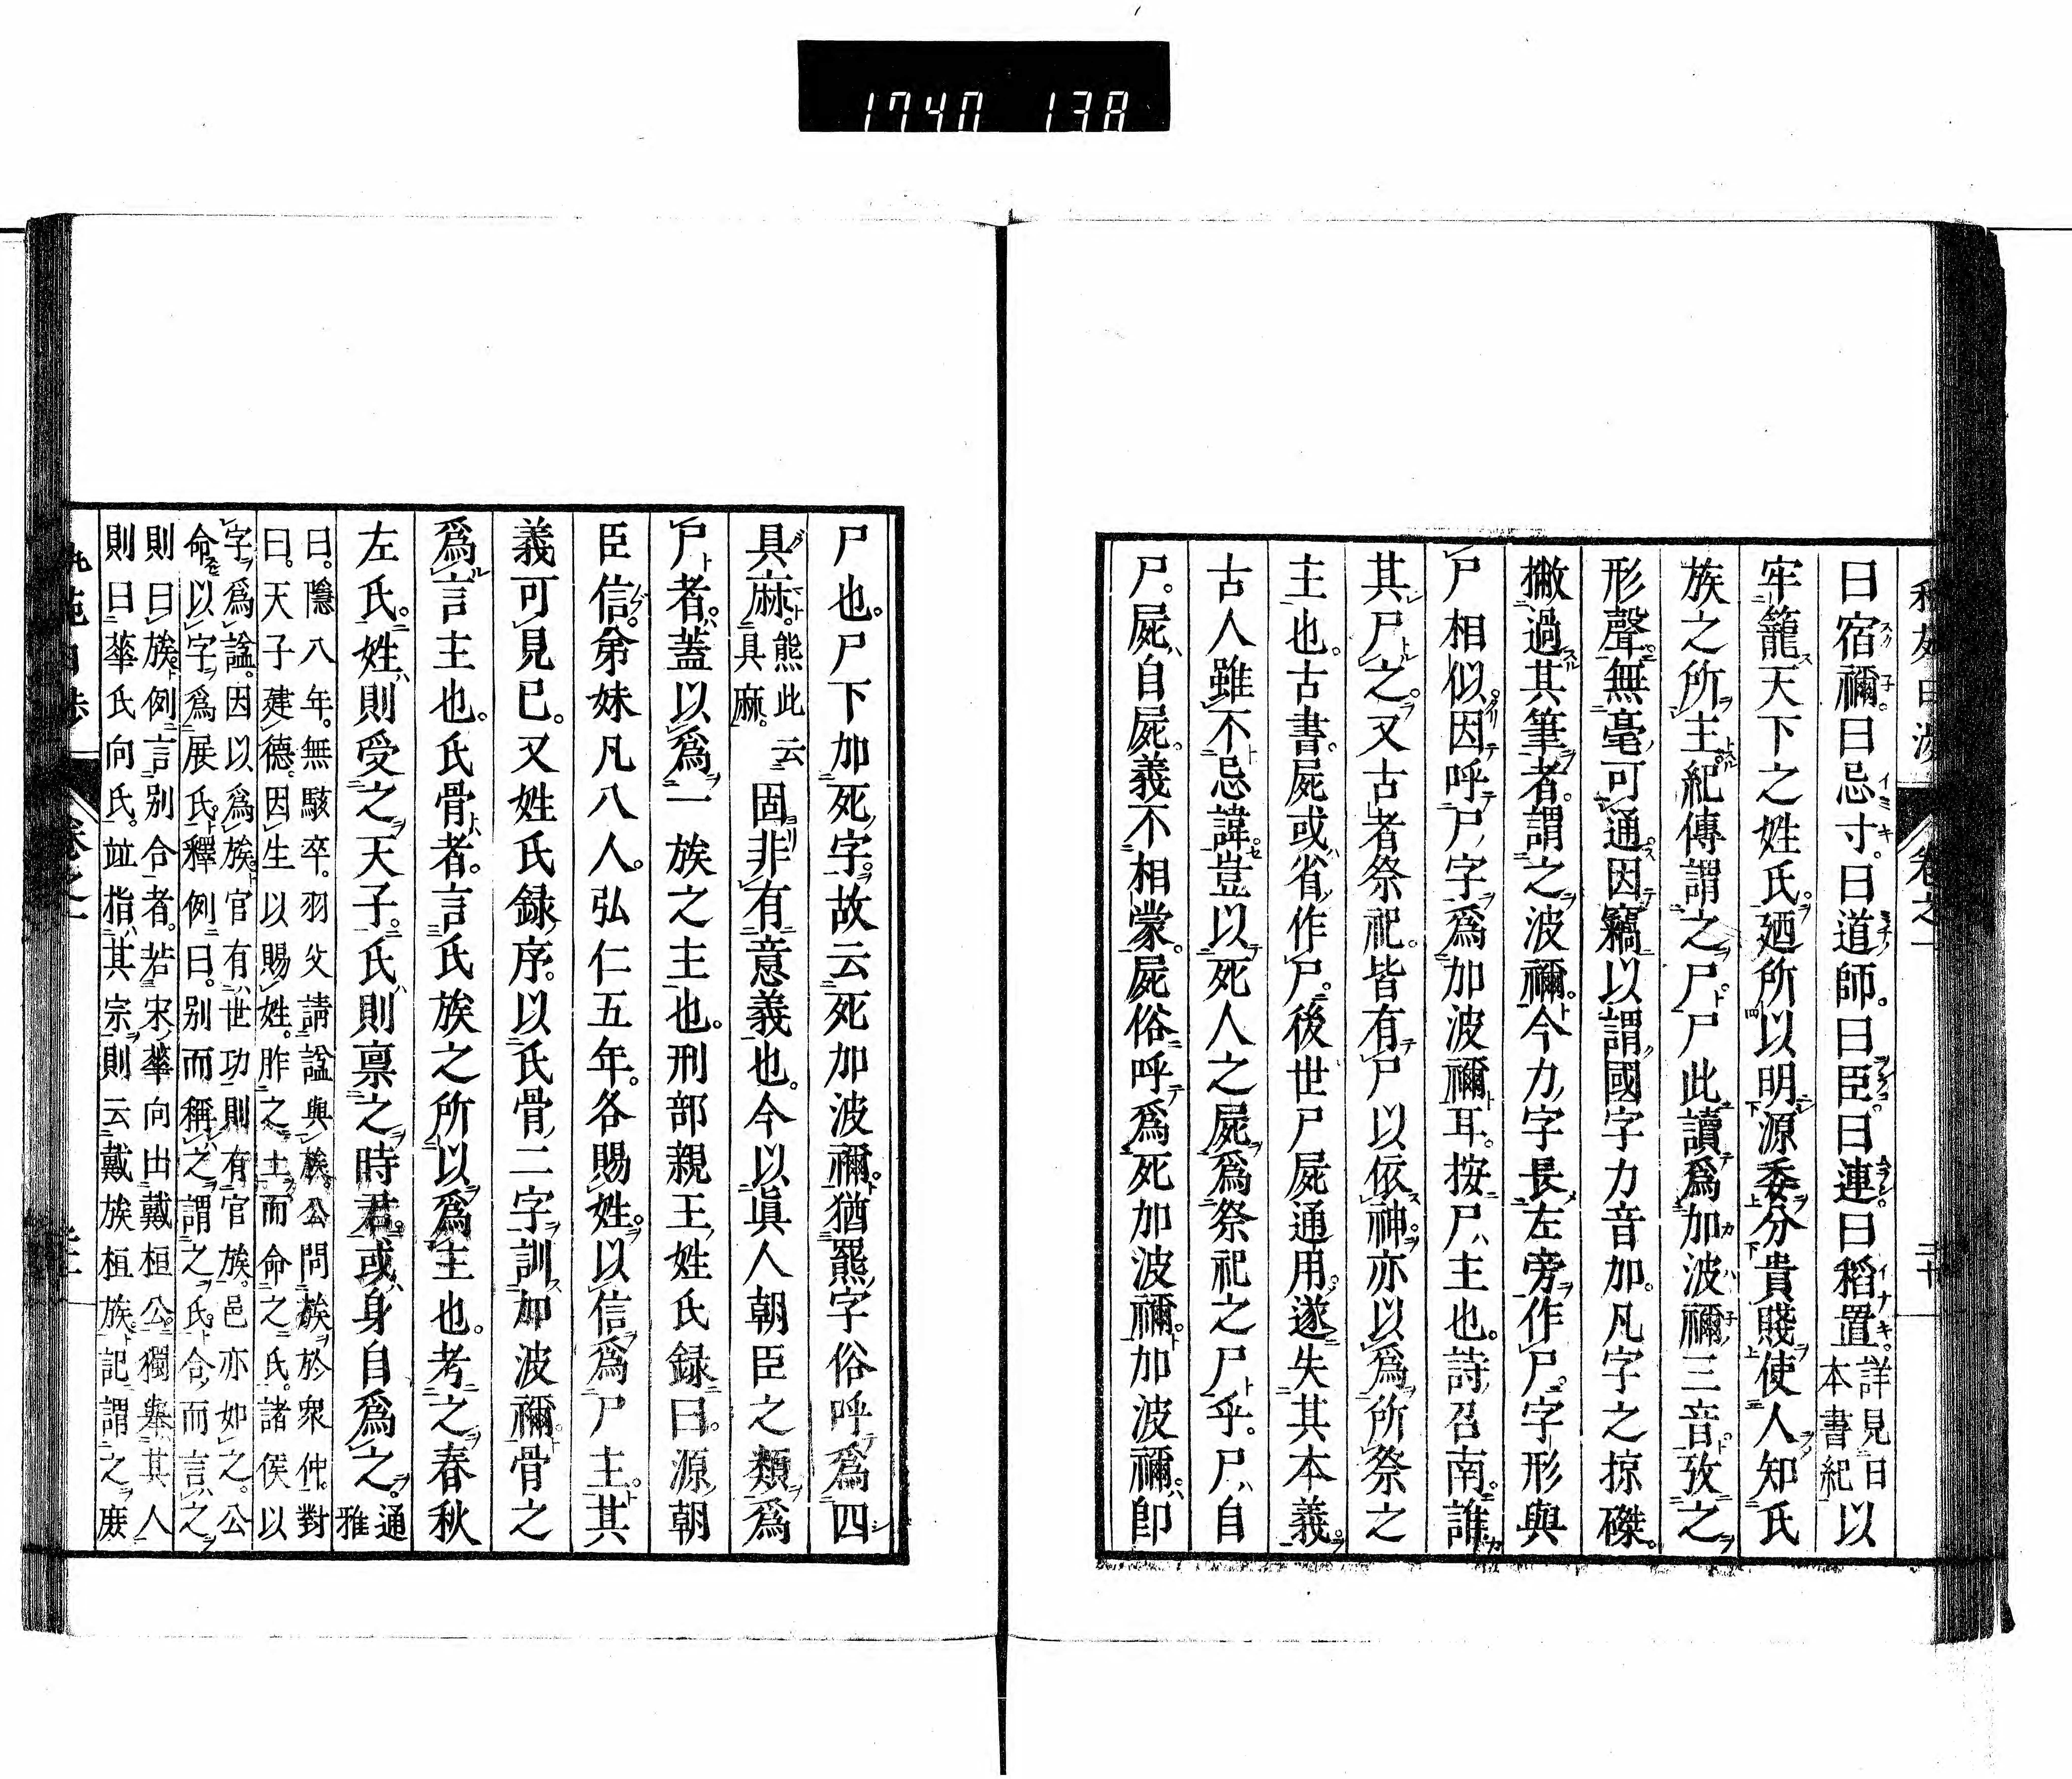 1740 138
卷之一 二十
曰宿禰。曰忌寸。曰道師。曰臣。曰連。曰稻置。詳見日本書紀以
牢籠天下之姓氏。廼所以明源委分貴賤使人知氏
族之所主。紀傳謂之尸。尸此讀爲加波禰三音。攷之
形聲。無毫可通。因竊以謂國字力音加。凡字之掠磔。
撇過其筆者。謂之波禰。今力字長左旁作尸。字形與
尸相似。因呼尸字爲加波禰耳。按尸主也。詩召南。誰
其尸之。又古者祭祀。皆有尸以依神。亦以爲所祭之
主也。古書。屍或省作尸。後世尸屍通用。遂失其本義。
古人雖不忌諱。豈以死人之屍爲祭祀之尸乎。尸自
尸。屍自屍。義不相蒙。屍俗呼爲死加波禰。加波禰。卽
尸也。尸下加死字。故云死加波禰。猶羆字俗呼爲四
具麻。熊此云具麻。固非有意義也。今以眞人朝臣之類爲
尸者。蓋以爲一族之主也。刑部親王姓氏録曰。源朝
臣信。弟妹凡八人。弘仁五年。各賜姓。以信爲尸主。其
義可見已。又姓氏録序。以氏骨二字訓加波禰。骨之
爲言主也。氏骨者。言氏族之所以爲主也。考之春秋
左氏。姓則受之天子。氏則禀之時君。或身自爲之。通雅
曰。隱八年。無駭卒。羽父請謚與族。公問族於衆仲。對
曰。天子建德。因生以賜姓。胙之土。而命之氏。諸侯以
字爲謚。因以爲族。官有世功。則有官族。邑亦如之。公
命以字爲展氏。釋例曰。別而稱之謂之氏。合而言之
則曰族。例言別合者。若宋華向出戴桓公。獨擧其人
則曰華氏向氏。竝指其宗則云戴族桓族。記謂之庶
卷之一